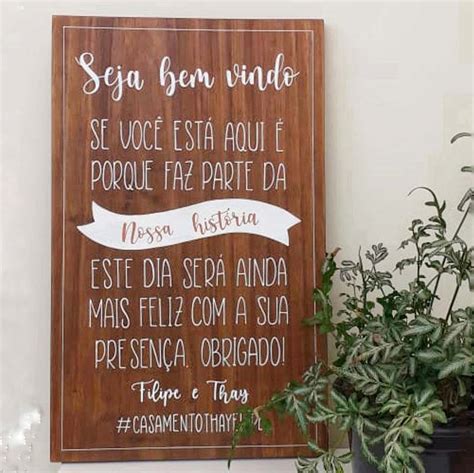 Seja bem vindo
SE VOCÊ ESTÁ AQUI É
PORQUE FAZ PARTE DA
Nossa história
ESTE DIA SERÁ AINDA
MAIS FELIZ COM A SUA
PRESENÇA, OBRIGADO!
Filipe e Thay